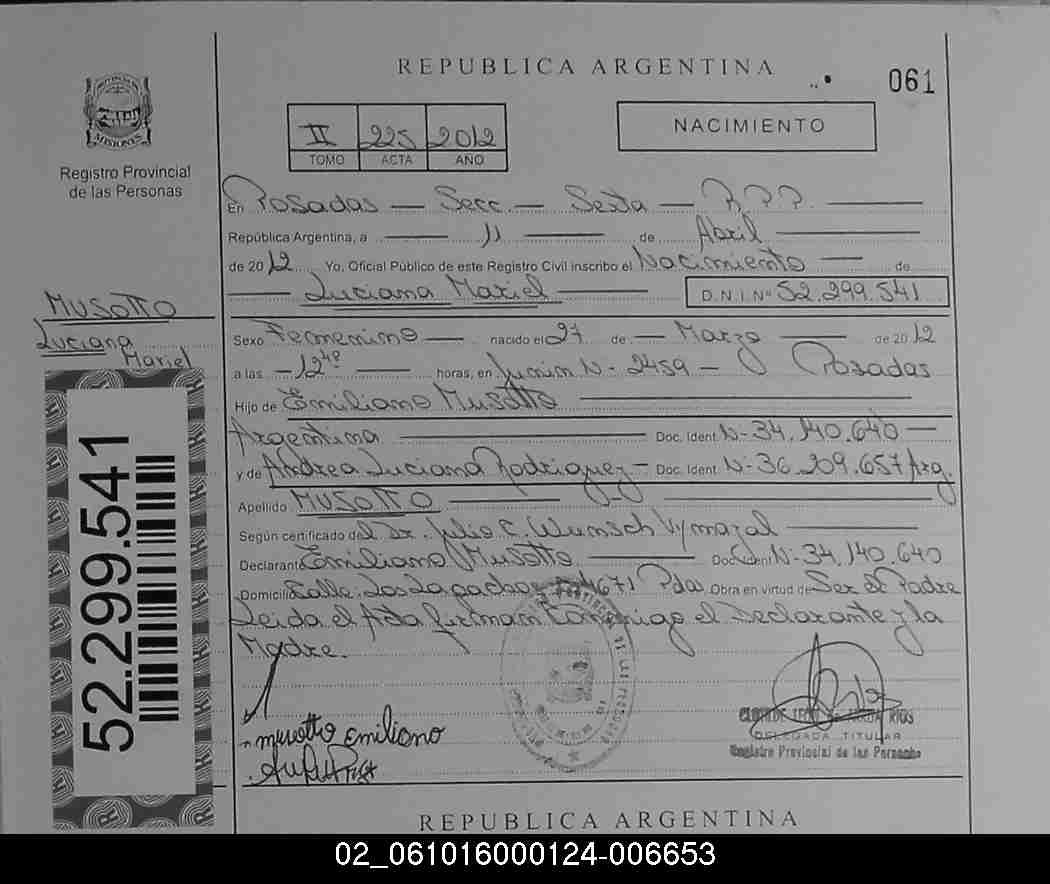 REPUBLICA ARGENTINA
061
PROVINCIA DE MISIONES
Registro Provincial
de las Personas
II 225 2012
TOMO ACTA AÑO
NACIMIENTO
En Posadas — Secc. — Sexta — R.P.P.
República Argentina, a 11 de Abril
de 2012 Yo, Oficial Público de este Registro Civil inscribo el Nacimiento — de
Luciana Mariel D.N.I. Nº 52.299.541
MUSOTTO
Luciana
Mariel
Sexo Femenino — nacido el 27 de — Marzo — de 2012
a las — 12 40 — horas, en Junin N- 2459 — Posadas
Hijo de Emiliano Musotto
Argentina Doc. Ident. N- 34.140.640 —
y de Andrea Luciana Rodriguez — Doc. Ident. N- 36.209.657 Arg.
Apellido MUSOTTO
Según certificado del Dr. Julio C. Wunsch Vymazal
Declarante Emiliano Musotto Doc. Ident. N- 34.140.640
Domicilio Calle: Los 4671 Pdas Obra en virtud de Ser el Padre
Leida el Acta firman Conmigo el Declarante y la
Madre.
52.299.541
musotto Emiliano
DELEGADA TITULAR
Registro Provincial de las Personas
REPUBLICA ARGENTINA
02_061016000124-006653